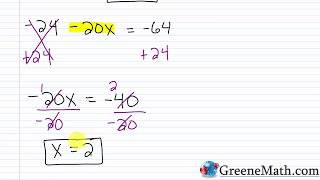 -24 -20x = -64
+24 +24
1 2
-20x = -40
-20 -20
x = 2
GreeneMath.com